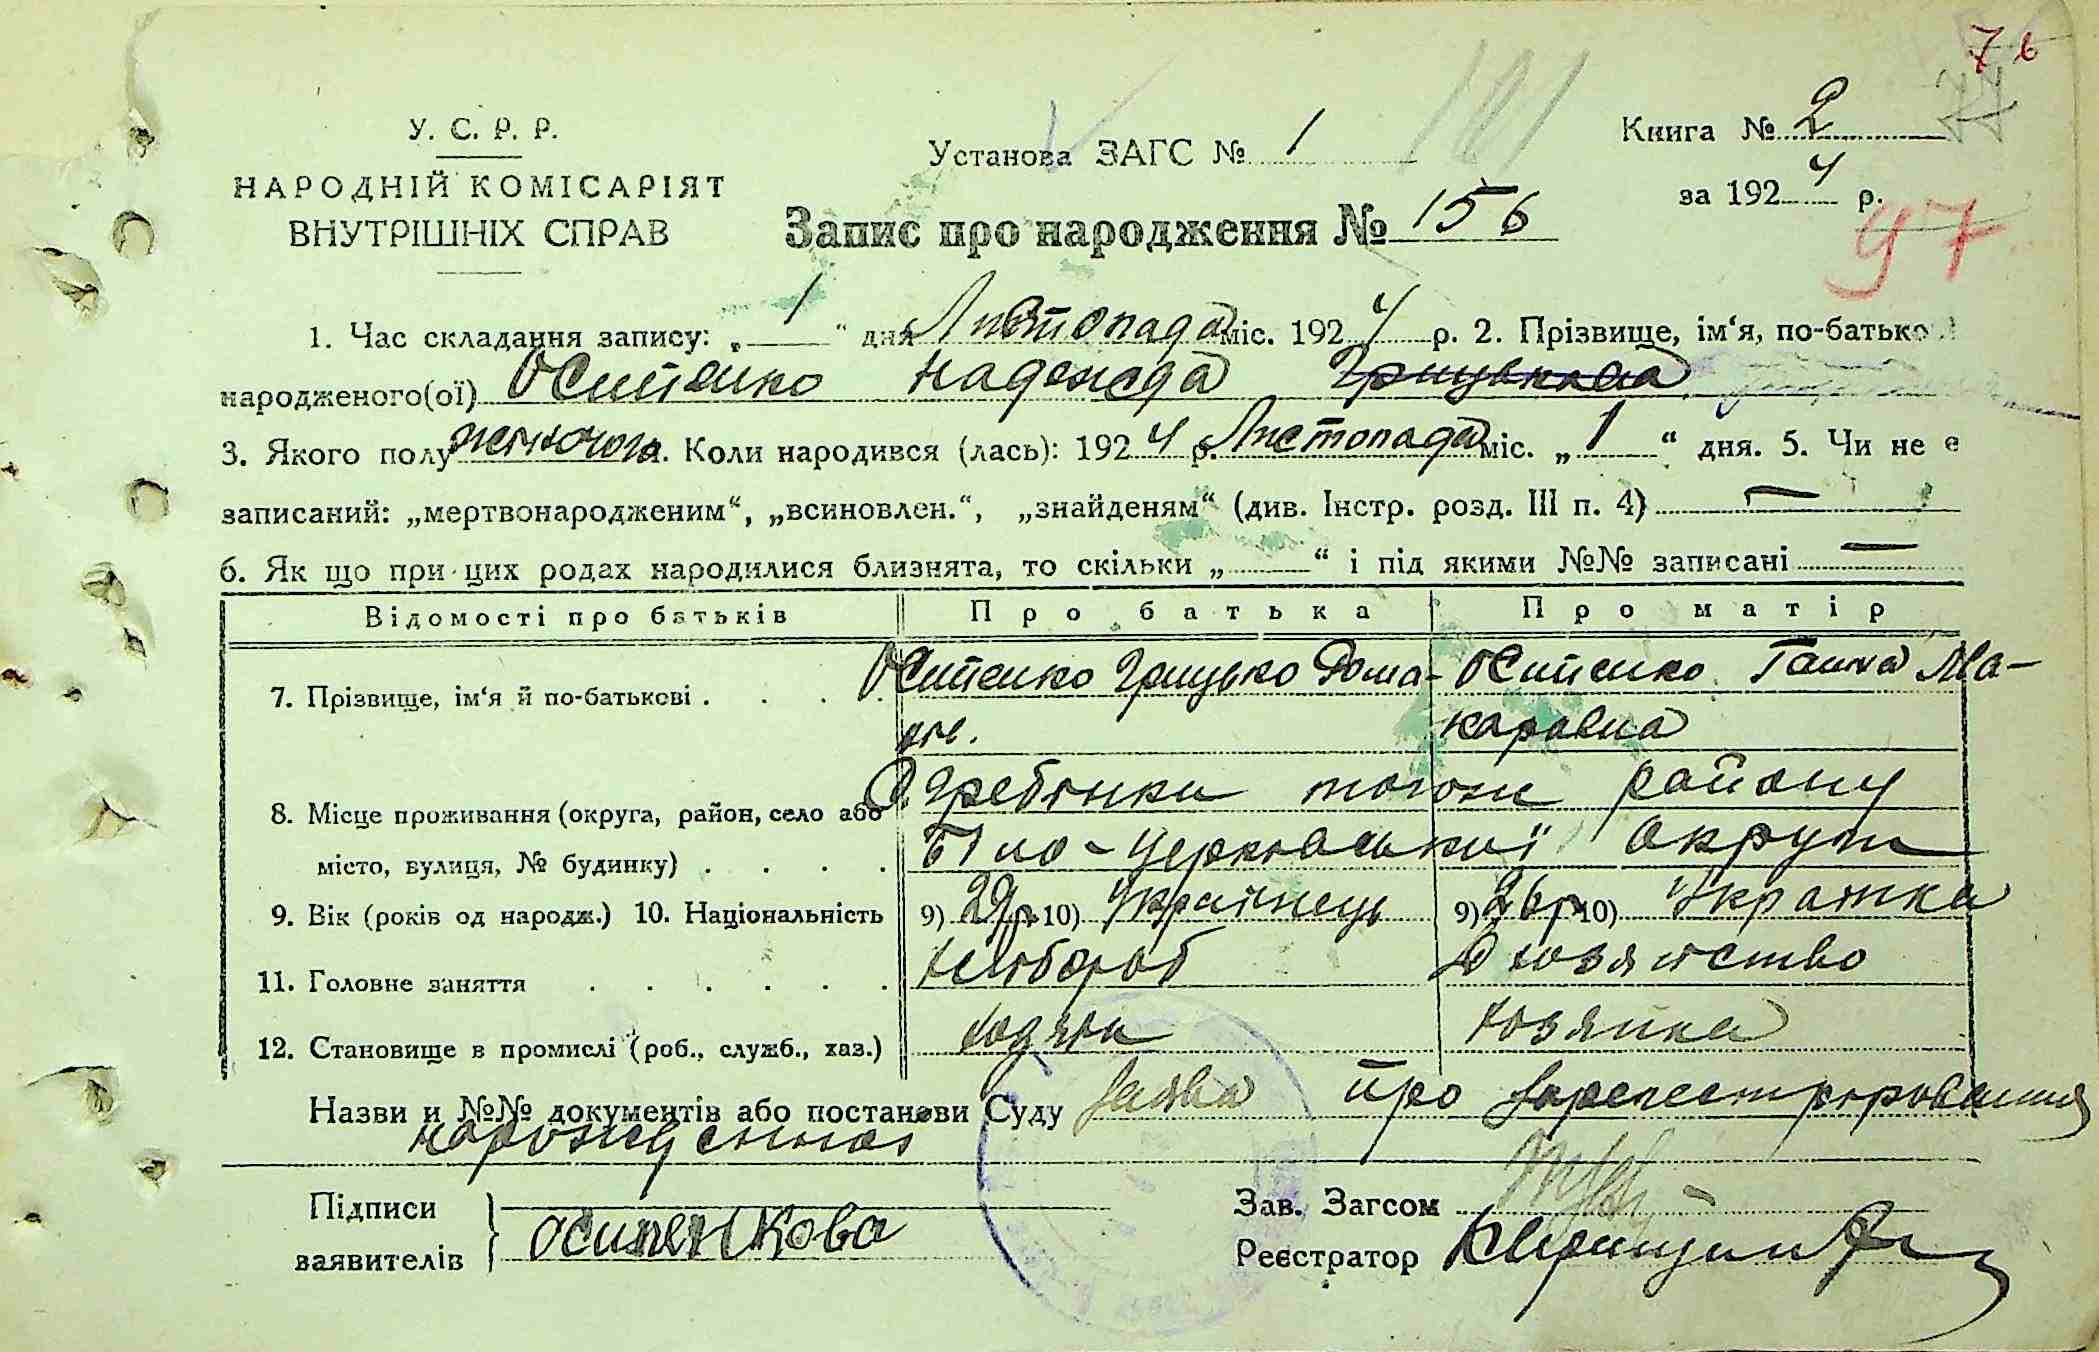 7 6
77
У. С. Р. Р.
НАРОДНІЙ КОМІСАРІЯТ
ВНУТРІШНІХ СПРАВ
Установа ЗАГС № 1
181
Книга № 2
за 1924 р.
97
Запис про народження № 156
1. Час складання запису: „ 1 “ дня Листопада міс. 1924 р. 2. Прізвище, ім‘я, по-батькові
народженого(ої) Осипенко Надежда Грицьковна
3. Якого полу жіночого 4. Коли народився (лась): 1924 р. Листопада міс. „ 1 “ дня. 5. Чи не є
записаний: „мертвонародженим“, „всиновлен.“, „знайденям“ (див. Інстр. розд. III п. 4) —
6. Як що при цих родах народилися близнята, то скільки „ “ і під якими №№ записані —
Відомості про батьків Про батька Про матір
7. Прізвище, ім‘я й по-батькові . . . . Осипенко Грицько Дома- Осипенко Ганна Ма-
каровна
8. Місце проживання (округа, район, село або С. Гребінки того ж району
місто, вулиця, № будинку) . . . . Біло-Церковської округи
9. Вік (років од народж.) 10. Національність 9) 29 р. 10) Українець 9) 26 р. 10) Українка
11. Головне заняття . . . . . . Хлібороб Д хозяйство
12. Становище в промислі (роб., служб., хаз.) хозяїн хозяйка
Назви и №№ документів або постанови Суду Заява про зареєстрировання
народження
Підписи
заявителів } Осипенкова
Зав. Загсом
Реєстратор